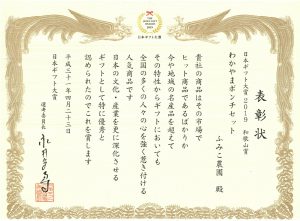 日本ギフト大賞
表彰状
日本ギフト大賞2019 和歌山賞
わかやまポンチセット
ふみこ農園 殿
貴社の商品はその市場で
ヒット商品であるばかりか
今や地域の名産品を超えて
その特性からギフトにおいても
全国の多くの人々の心を強く惹き付ける
人気商品です
日本の文化・産業を更に深化させる
ギフトとして特に優秀と
認められたのでこれを賞します
平成三十一年四月二十三日
日本ギフト大賞
選考委員長